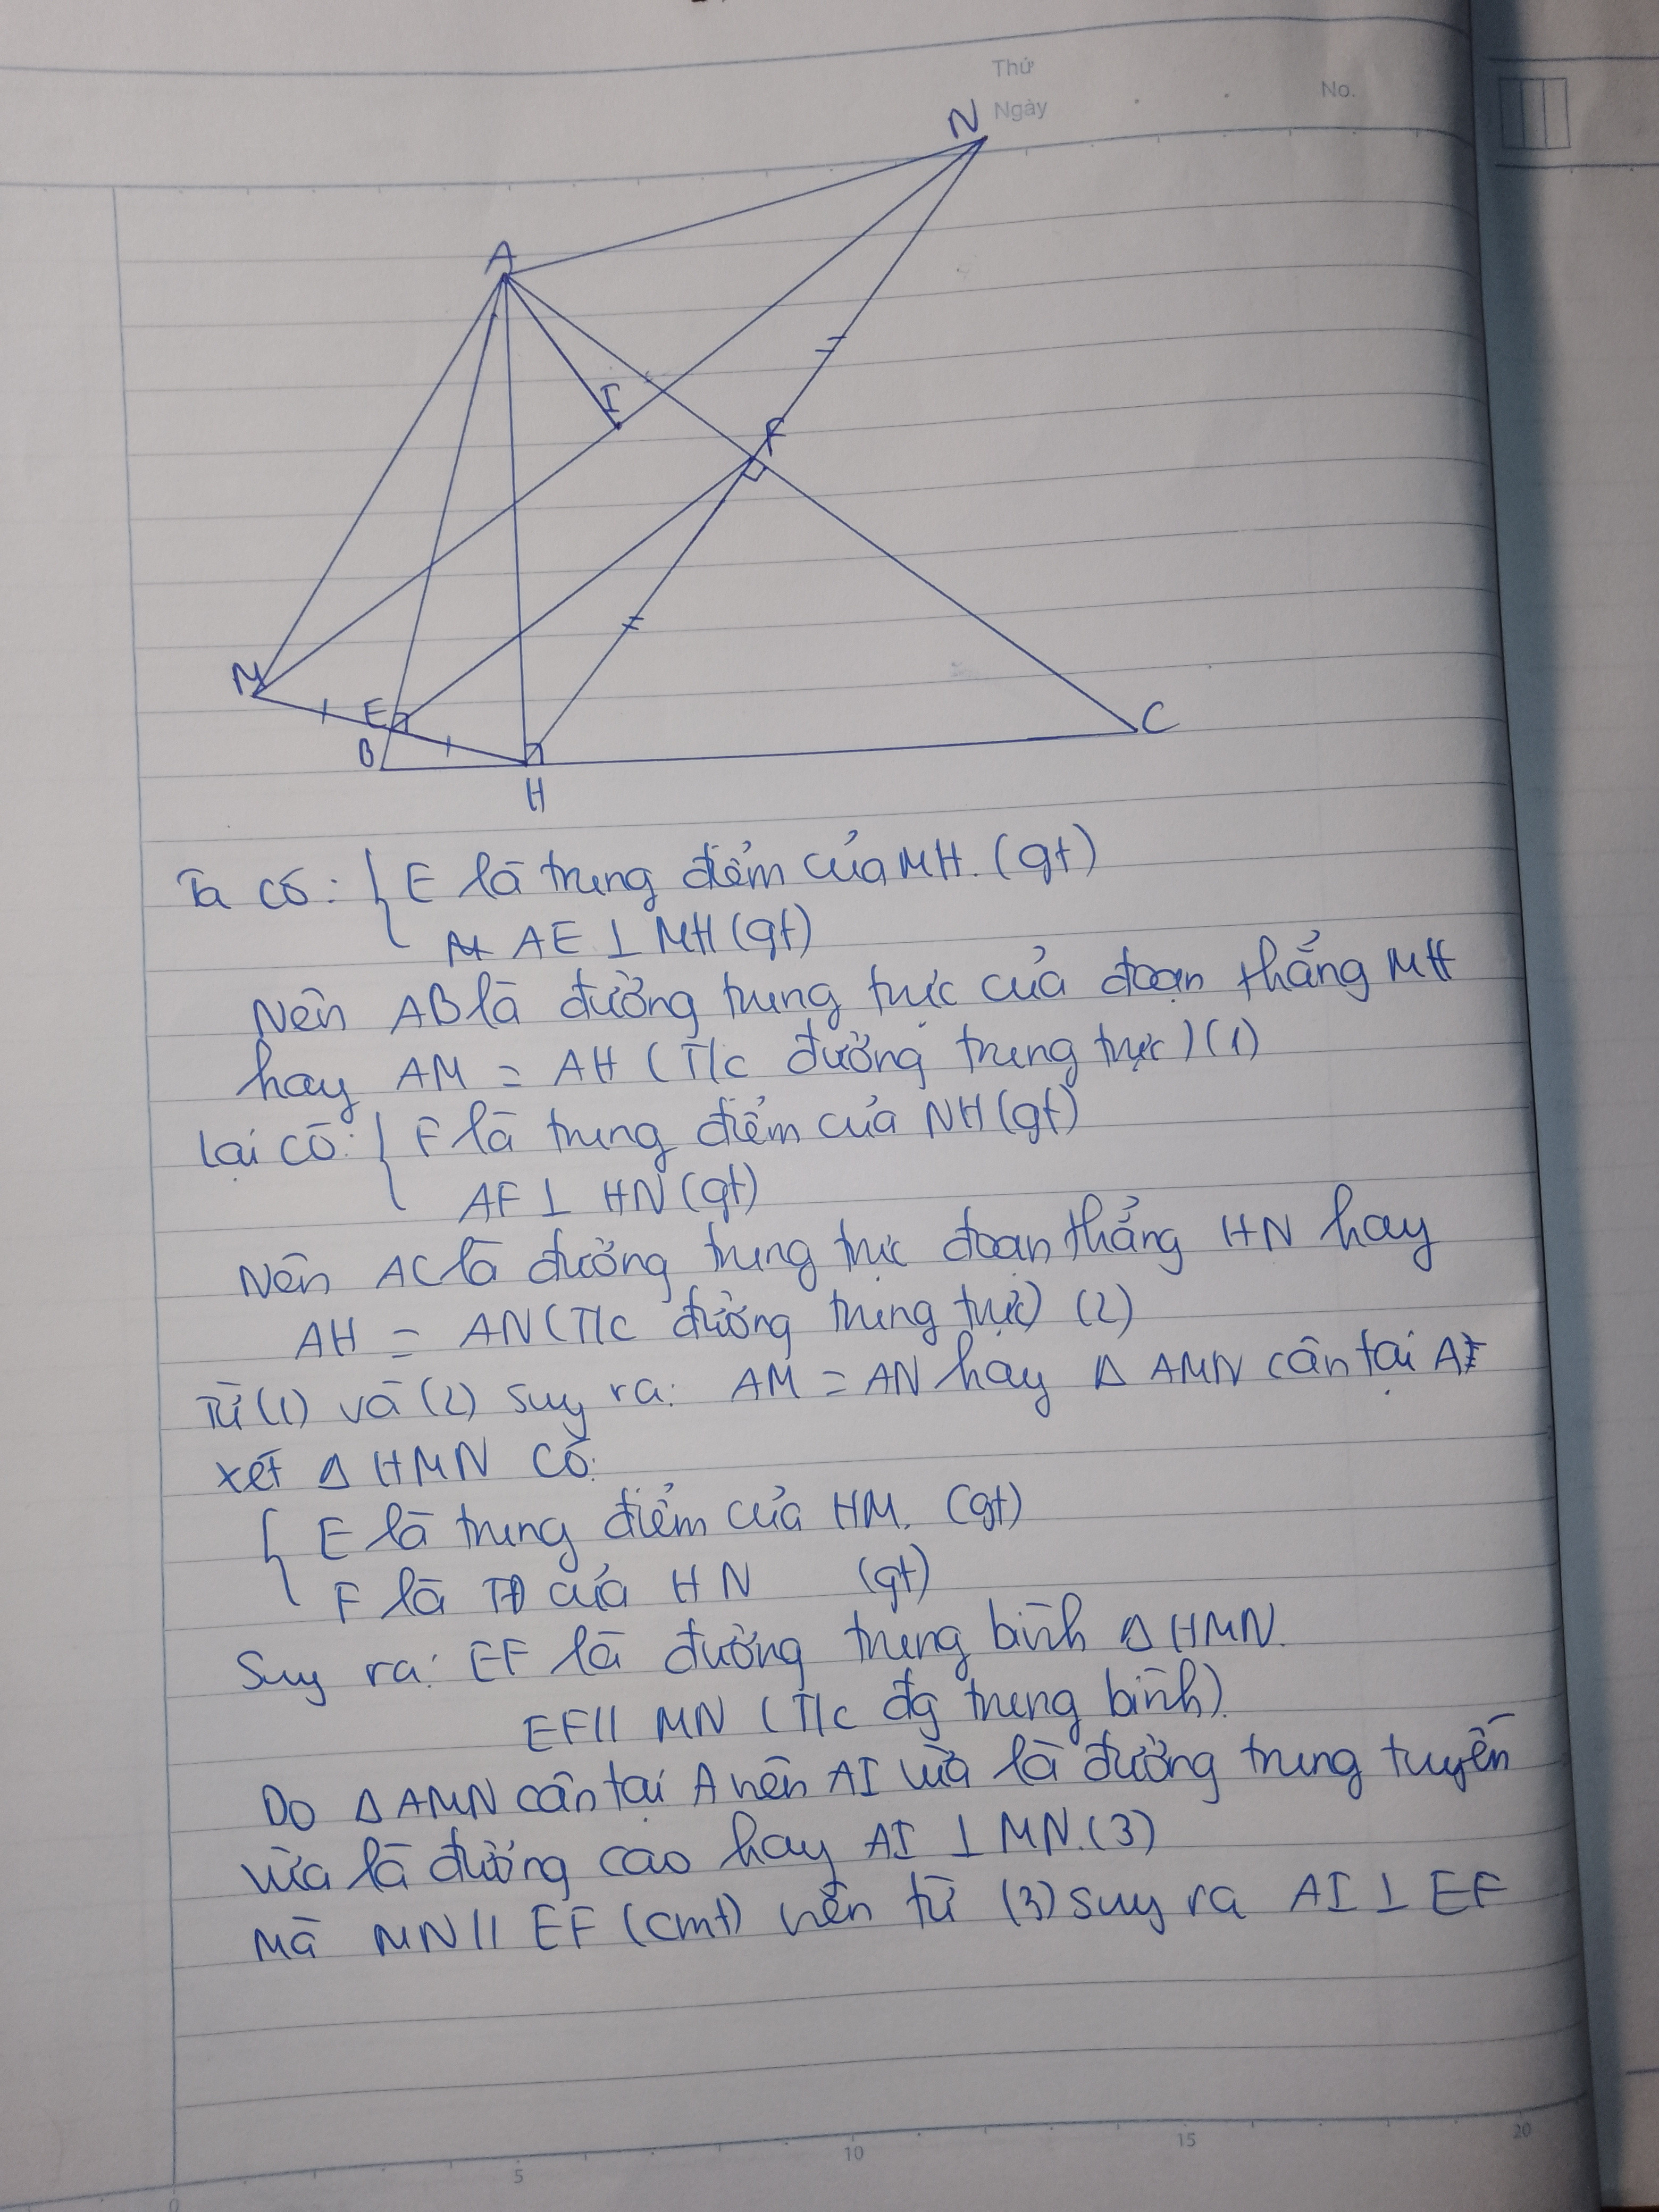 Thứ
Ngày
No.
N
A
I
F
M
E
B
H
C
Ta có: { E là trung điểm của MH. (gt)
AE ⊥ MH (gt)
Nên AB là đường trung trực của đoạn thẳng MH
hay AM = AH (T/c đường trung trực) (1)
Lại có: { F là trung điểm của NH (gt)
AF ⊥ HN (gt)
Nên AC là đường trung trực đoạn thẳng HN hay
AH = AN (T/c đường trung trực) (2)
Từ (1) và (2) suy ra: AM = AN hay Δ AMN cân tại A
xét Δ HMN có:
{ E là trung điểm của HM. (gt)
F là TĐ của HN (gt)
Suy ra: EF là đường trung bình Δ HMN.
EF // MN (T/c đg trung bình).
Do Δ AMN cân tại A nên AI vừa là đường trung tuyến
vừa là đường cao hay AI ⊥ MN. (3)
Mà MN // EF (cmt) nên từ (3) suy ra AI ⊥ EF
0 5 10 15 20